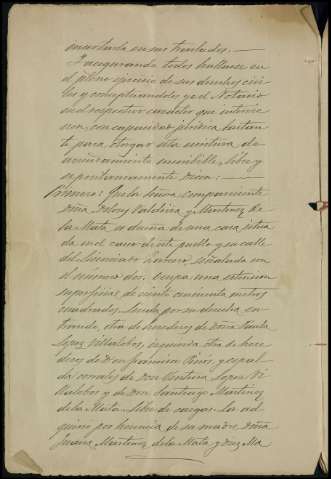 insertarla en sus traslados.—
Asegurando todos hallarse en
el pleno ejercicio de sus derechos civi-
les y conceptuándoles yo el Notario
en el respectivo carácter que intervie-
nen, con capacidad jurídica bastan-
te para otorgar esta escritura de
libre y
espontáneamente dicen:—
Primero: Que la Señora compareciente
Doña Dolores Valdivia y Martinez de
la Mata, es dueña de una casa situa-
da en el casco de este pueblo y su calle
del señalada con
el número dos. Ocupa una extensión
superficial de ciento cincuenta metros
cuadrados. Linda por su derecha en-
trando, otra de herederos de Doña Paula
Lopez Villalobos, izquierda otra de here-
deros de Don Francisco y espal-
da corrales de Don Ventura Lopez Vi-
llalobos y de Don Santiago Martinez
de la Mata. Libre de cargas. La ad-
quirió por herencia de su madre Doña
Juana Martinez de la Mata y Diaz Ma